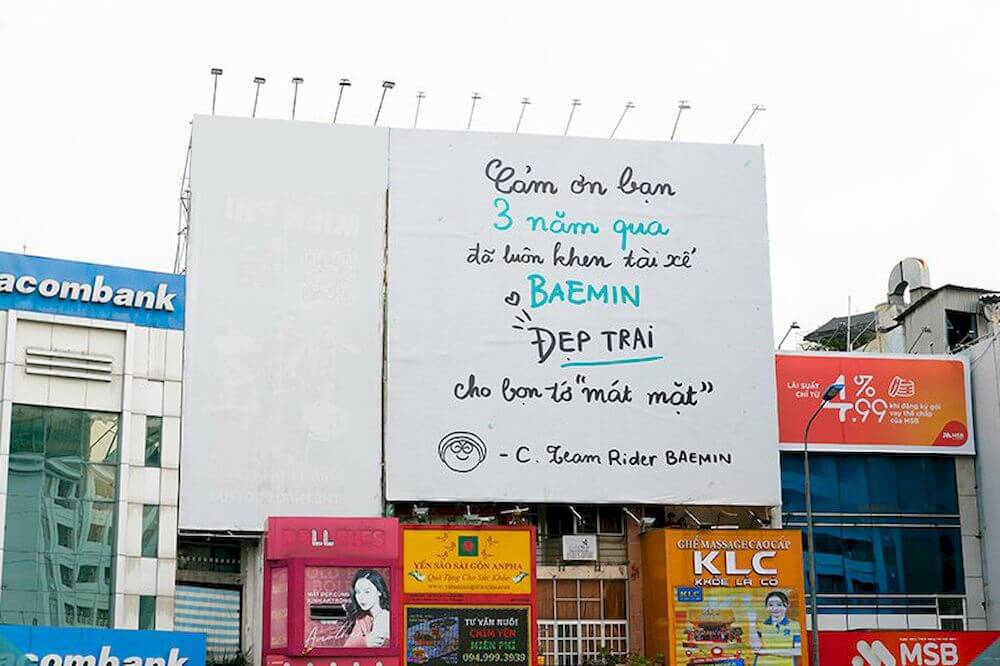 Cảm ơn bạn
3 năm qua
đã luôn khen tài xế
BAEMIN
ĐẸP TRAI
cho bọn tớ "mát mặt"
- C. Team Rider BAEMIN
acombank
LÃI SUẤT
CHỈ TỪ
4.99%
khi đăng ký gói
vay thế chấp
của MSB
MSB
YẾN SÀO SÀI GÒN ANPHA
Quà Tặng Cho Sức Khỏe
TƯ VẤN NUÔI
CHIM YẾN
MIỄN PHÍ
094.999.3939
GHẾ MASSAGE CAO CẤP
KLC
KHỎE LÀ CÓ
KLC
combank
MSB